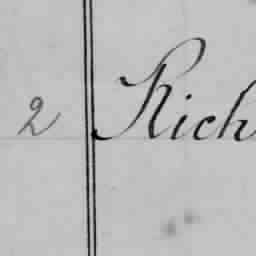 2 Rich